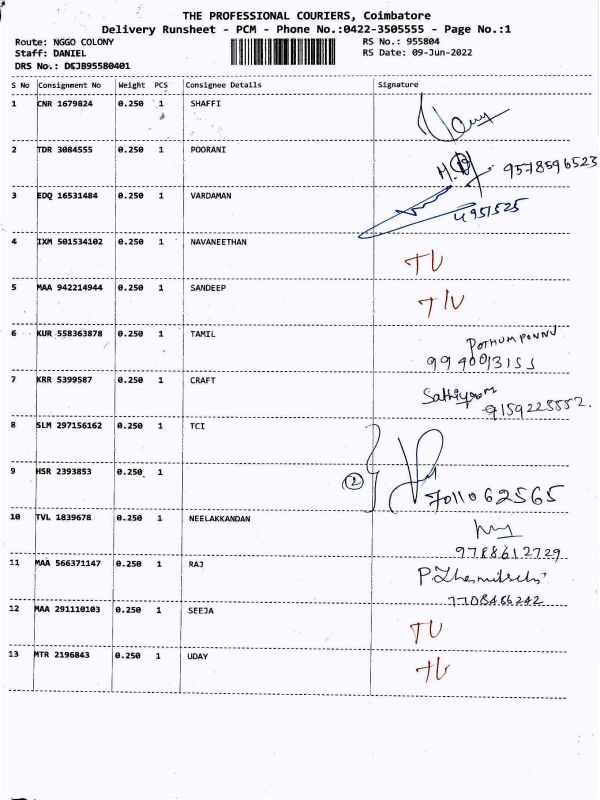 THE PROFESSIONAL COURIERS, Coimbatore
Delivery Runsheet - PCM - Phone No.:0422-3505555 - Page No.:1
Route: NGGO COLONY RS No.: 955804
Staff: DANIEL RS Date: 09-Jun-2022
DRS No.: DEJB95580401
S No Consignment No Weight PCS Consignee Details Signature
1 CNR 1679824 0.250 1 SHAFFI
2 TDR 3084555 0.250 1 POORANI 9578596523
3 EDQ 16531484 0.250 1 VARDAMAN
4 IXM 501534102 0.250 1 NAVANEETHAN
5 MAA 942214944 0.250 1 SANDEEP
6 KUR 558363878 0.250 1 TAMIL POTHUMPONNU
7 KRR 5399587 0.250 1 CRAFT 9159225552.
8 SLM 297156162 0.250 1 TCI
9 HSR 2393853 0.250 1 2 7011062565
10 TVL 1839678 0.250 1 NEELAKKANDAN
9788612729
11 MAA 566371147 0.250 1 RAJ
7708466242
12 MAA 291110103 0.250 1 SEEJA
13 MTR 2196843 0.250 1 UDAY